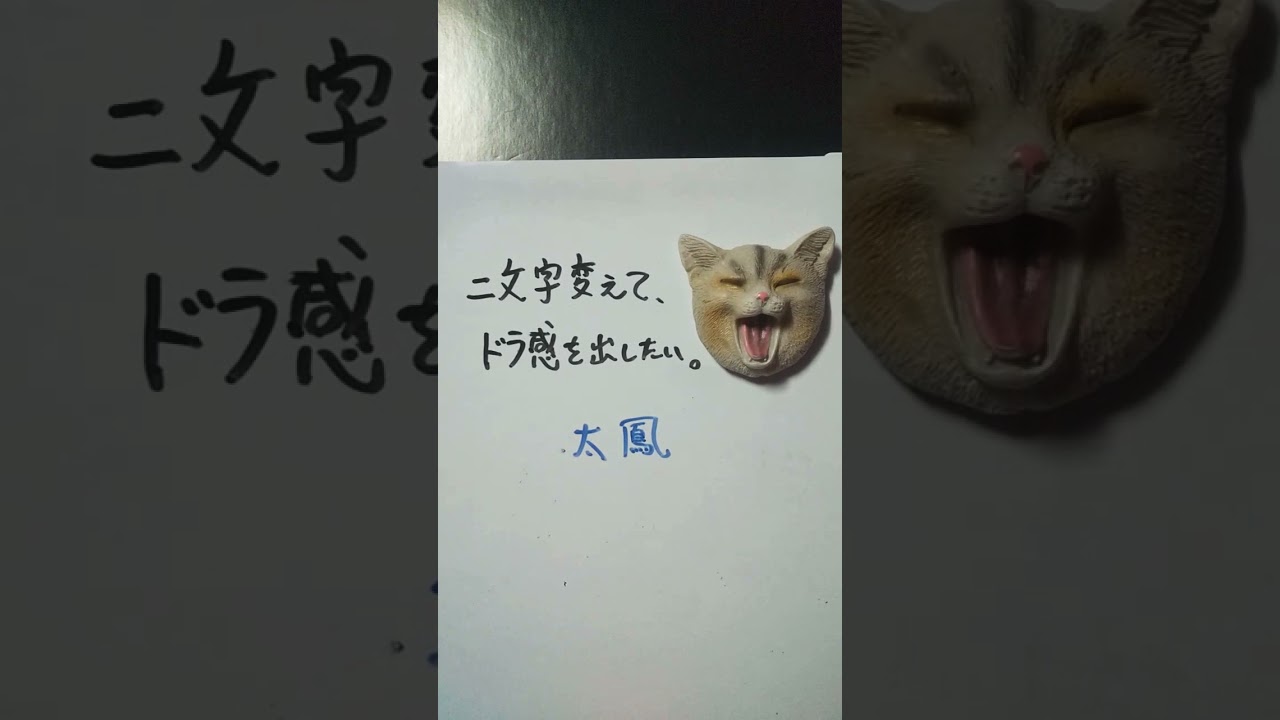 二文字変えて、
ドラ感を出したい。
太鳳